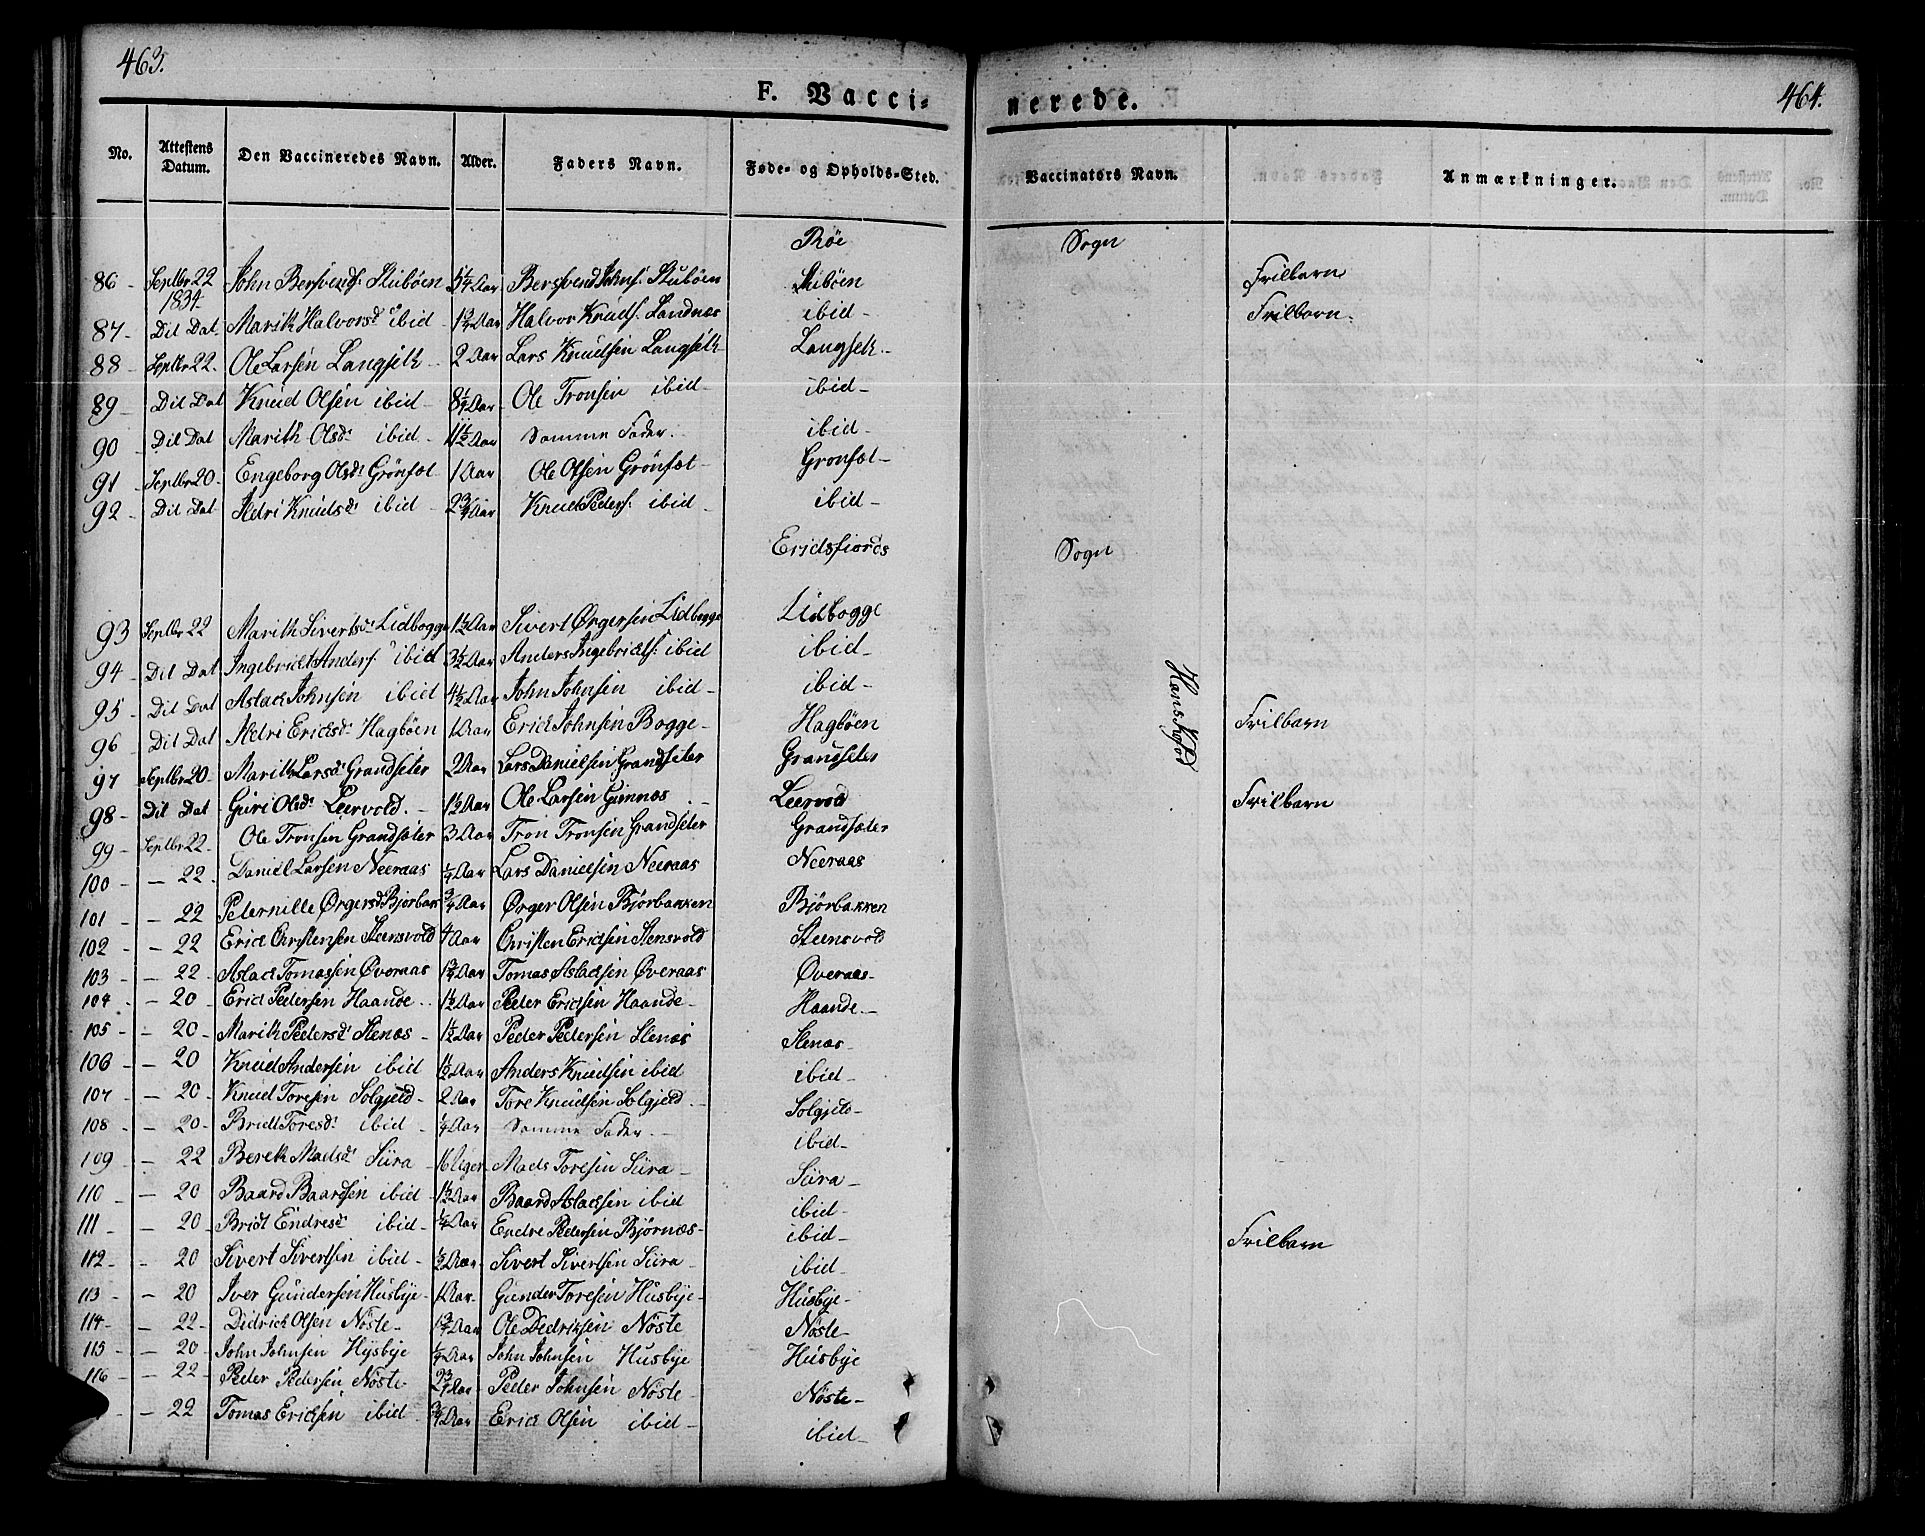 463.
464.
F. Vacci-
nerede.
No. Attestens Datum. Den Vaccineredes Navn. Alder. Faders Navn. Føde- og Opholds-Sted. Vaccinators Navn. Anmærkninger.
Röe Sogn
86 - Septbr 22 1834 John Bersvends. Stuböen 5 1/4 Aar Bersvend Johns. Stuböen Stuböen Frilbarn
87 - Dit Dat Marith Halvorsd. ibid - 1 3/4 Aar Halvor Knuds. Sandnæs ibid - Frilbarn.
88 - Septbr 22. Ole Larsen Langseth - 2 Aar Lars Knudsen Langseth Langseth -
89 - Dit Dat Knud Olsen ibid - 8 1/4 Aar Ole Tronsen ibid - ibid -
90 - Dit Dat Marith Olsd. ibid - 11 1/2 Aar Samme Fader. ibid -
91 - Septbr 20 - Engeborg Olsd. Grönset - 1 Aar Ole Olsen Grönset - Gronset -
92 - Dit Dat Sidri Knudsd. ibid - 2 3/4 Aar Knud Peders. ibid - ibid -
Eridsfiords Sogn
93 Septbr 22 Marith Sivertsd. Lidbogge 1 1/2 Aar Sivert Ørgersen Lidbogge Lidbogge
94 - Dit Dat Ingebricht Anders. ibid 3 1/2 Aar Anders Ingebrichts. ibid ibid -
95 - Dit Dat Aslack Johnsen ibid 4 1/2 Aar John Johnsen ibid - ibid -
96 - Dit Dat Sidri Ericksd. Hagböen 1 Aar Erick Johnsen Bogge - Hagböen Frilbarn
97 - Septbr 20 - Marith Larsd. Grandseter 2 Aar Lars Danielsen Grandseter Grandseter
98 - Dit Dat Guri Olsd. Leervold. - 1 1/2 Aar Ole Larsen Gimnæs - Leervold Frilbarn
99 - Septbr 22. Ole Tronsen Grandsæter 3 Aar Tron Tronsen Grandseter Grandsæter
100 - - 22. Daniel Larsen Neeraas 1/4 Aar Lars Danielsen Neeraas Neeraas
101 - - 22 - Peternille Ørgersd. Bjorbak 3/4 Aar Ørger Olsen Bjørbakken Bjørbakken
102 - - 22 Erick Christensen Stensvold 4 Aar Christen Ericksen Stensvold Steensvold
103 - - 22 - Aslack Tomassen Øveraas 1 3/4 Aar Tomas Aslacksen Øveraas Øveraas -
104 - - 20 - Erick Pedersen Haande - 1 1/2 Aar Peder Ericksen Haande - Haande -
105 - - 20 - Marith Pedersd. Stenæs - 1 1/2 Aar Peder Pedersen Stenæs Stenæs -
106 - - 20 Knud Andersen ibid 1 1/2 Aar Anders Knudsen ibid ibid -
107 - - 20 - Knud Toresen Solgjeld - 2 Aar Tore Knudsen Solgjeld - Solgjeld -
108 - - 20 - Bridt Toresd. ibid - 1/4 Aar Samme Fader - ibid -
109 - - 22 Bereth Madsd. Siira - 16 Uger Mads Toresen Siira - Siira -
110 - - 20 Baard Baardsen ibid - 1 1/2 Aar Baard Aslacksen ibid ibid -
111 - - 20 - Bridt Endresd. ibid - 1/4 Aar Endre Pedersen Bjørnæs - ibid - Frilbarn
112 - - 20 Sivert Sivertsen ibid - 1/2 Aar - Sivert Sivertsen Siira - ibid -
113 - - 20 Iver Gundersen Husbye - 1 Aar - Gunder Toresen Husbye - Husbye -
114 - - 22 - Didrick Olsen Nöste - 1 3/4 Aar Ole Dedriksen Nöste Nöste -
115 - - 20 - John Johnsen Hysbye 1/4 Aar John Johnsen Husbye Husbye
116 - - 22 Peder Pedersen Nöste 2 3/4 Aar - Peder Johnsen Nöste - Nöste -
- - 22 Tomas Ericksen ibid - 3/4 Aar Erick Olsen ibid - ibid -